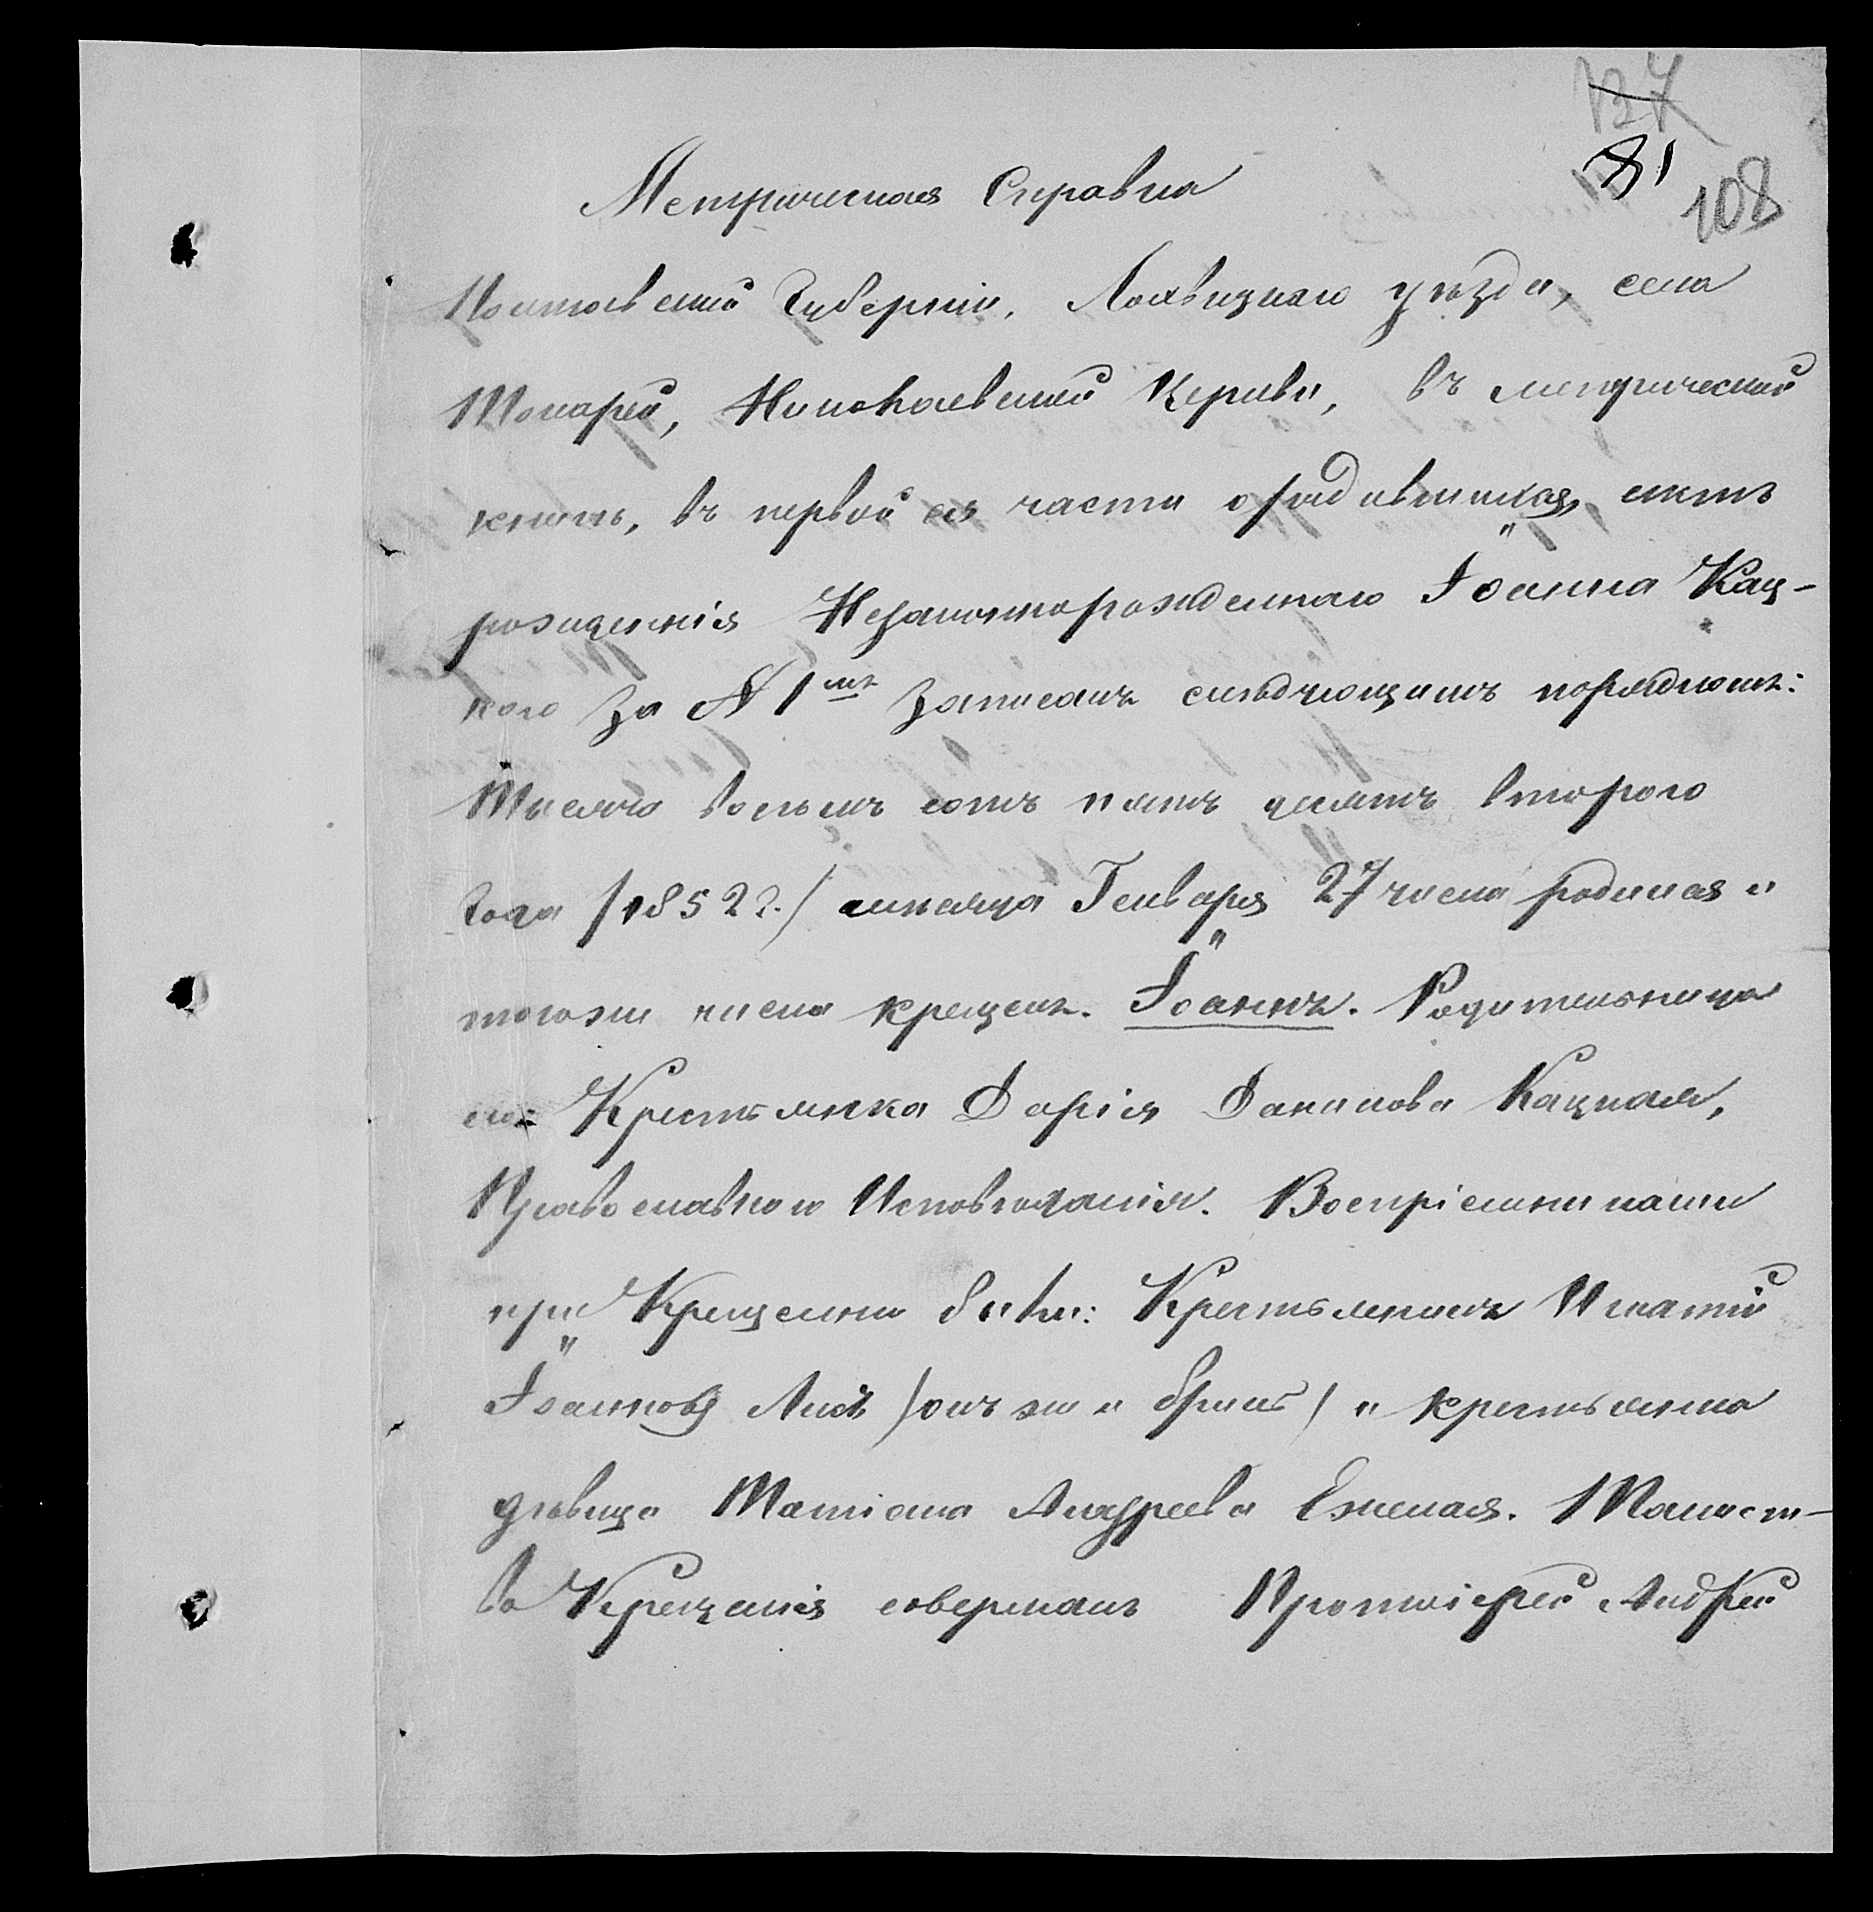 137
81
108
Метрическая Справка
Полтавской Губерніи, Лохвицкаго уѣзда, села
Токарей, Николаевской Церкви, въ метрической
книгѣ, въ первой ея части о родившихся, актъ
рожденія Незаконнорожденнаго Іоанна Кац-
каго за № 1мъ записанъ слѣдующимъ порядкомъ:
Тысяча восемь сотъ пять десятъ второго
Года /1852 г./ мѣсяца Генваря 27 числа родился и
тогоже числа крещенъ Іоаннъ. Родительница
его: Крестьянка Дарія Данилова Кацкая,
Православного Исповѣданія. Воспріемниками
при Крещеніи были: Крестьянинъ Игнатій
Іоанновъ /онъ же и / и крестьянка
дѣвица Татіана Андреева. Таинст-
во Крещенія совершалъ Протоіерей Андрей